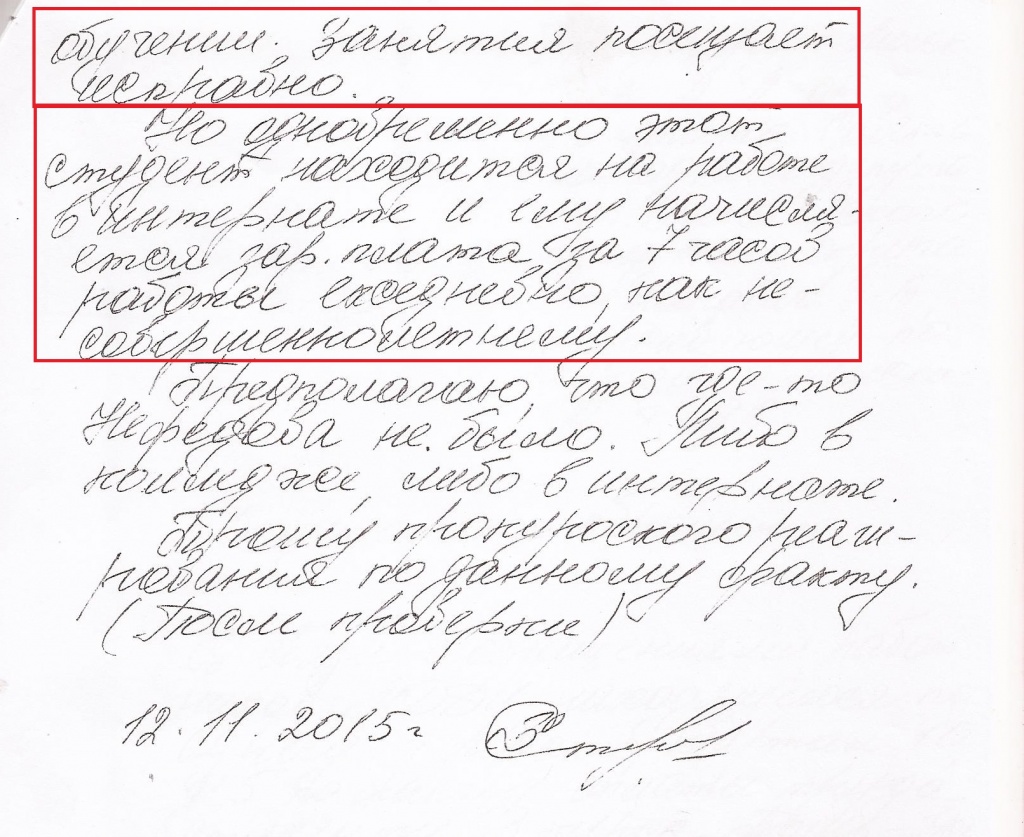 обучении. Занятия посещает
исправно.
Но одновременно этот
студент находится на работе
в интернате и ему начисля-
ется зар. плата за 7 часов
работы ежедневно, как не-
совершеннолетнему.
Предполагаю, что где-то
Нефедова не было. Либо в
колледже, либо в интернате.
Прошу прокурского реаги-
рования по данному факту.
(После проверки)
12.11.2015г